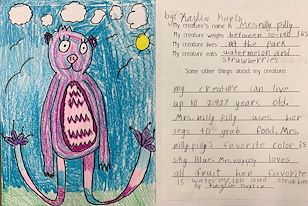 by: Kaylin
My creature's name is Mrs. nilly pilly
My creature weighs between 70-140 lbs
My creature lives at the park
My creature eats watermelon and
strawberries
Some other things about my creature:
my creature can live
up to years old.
Mrs. nilly pilly uses her
legs to grab food. Mrs.
nilly pilly's favorite color is
sky blue. Mrs. loves
all fruit her favorite
is watermelon and
by Kaylin